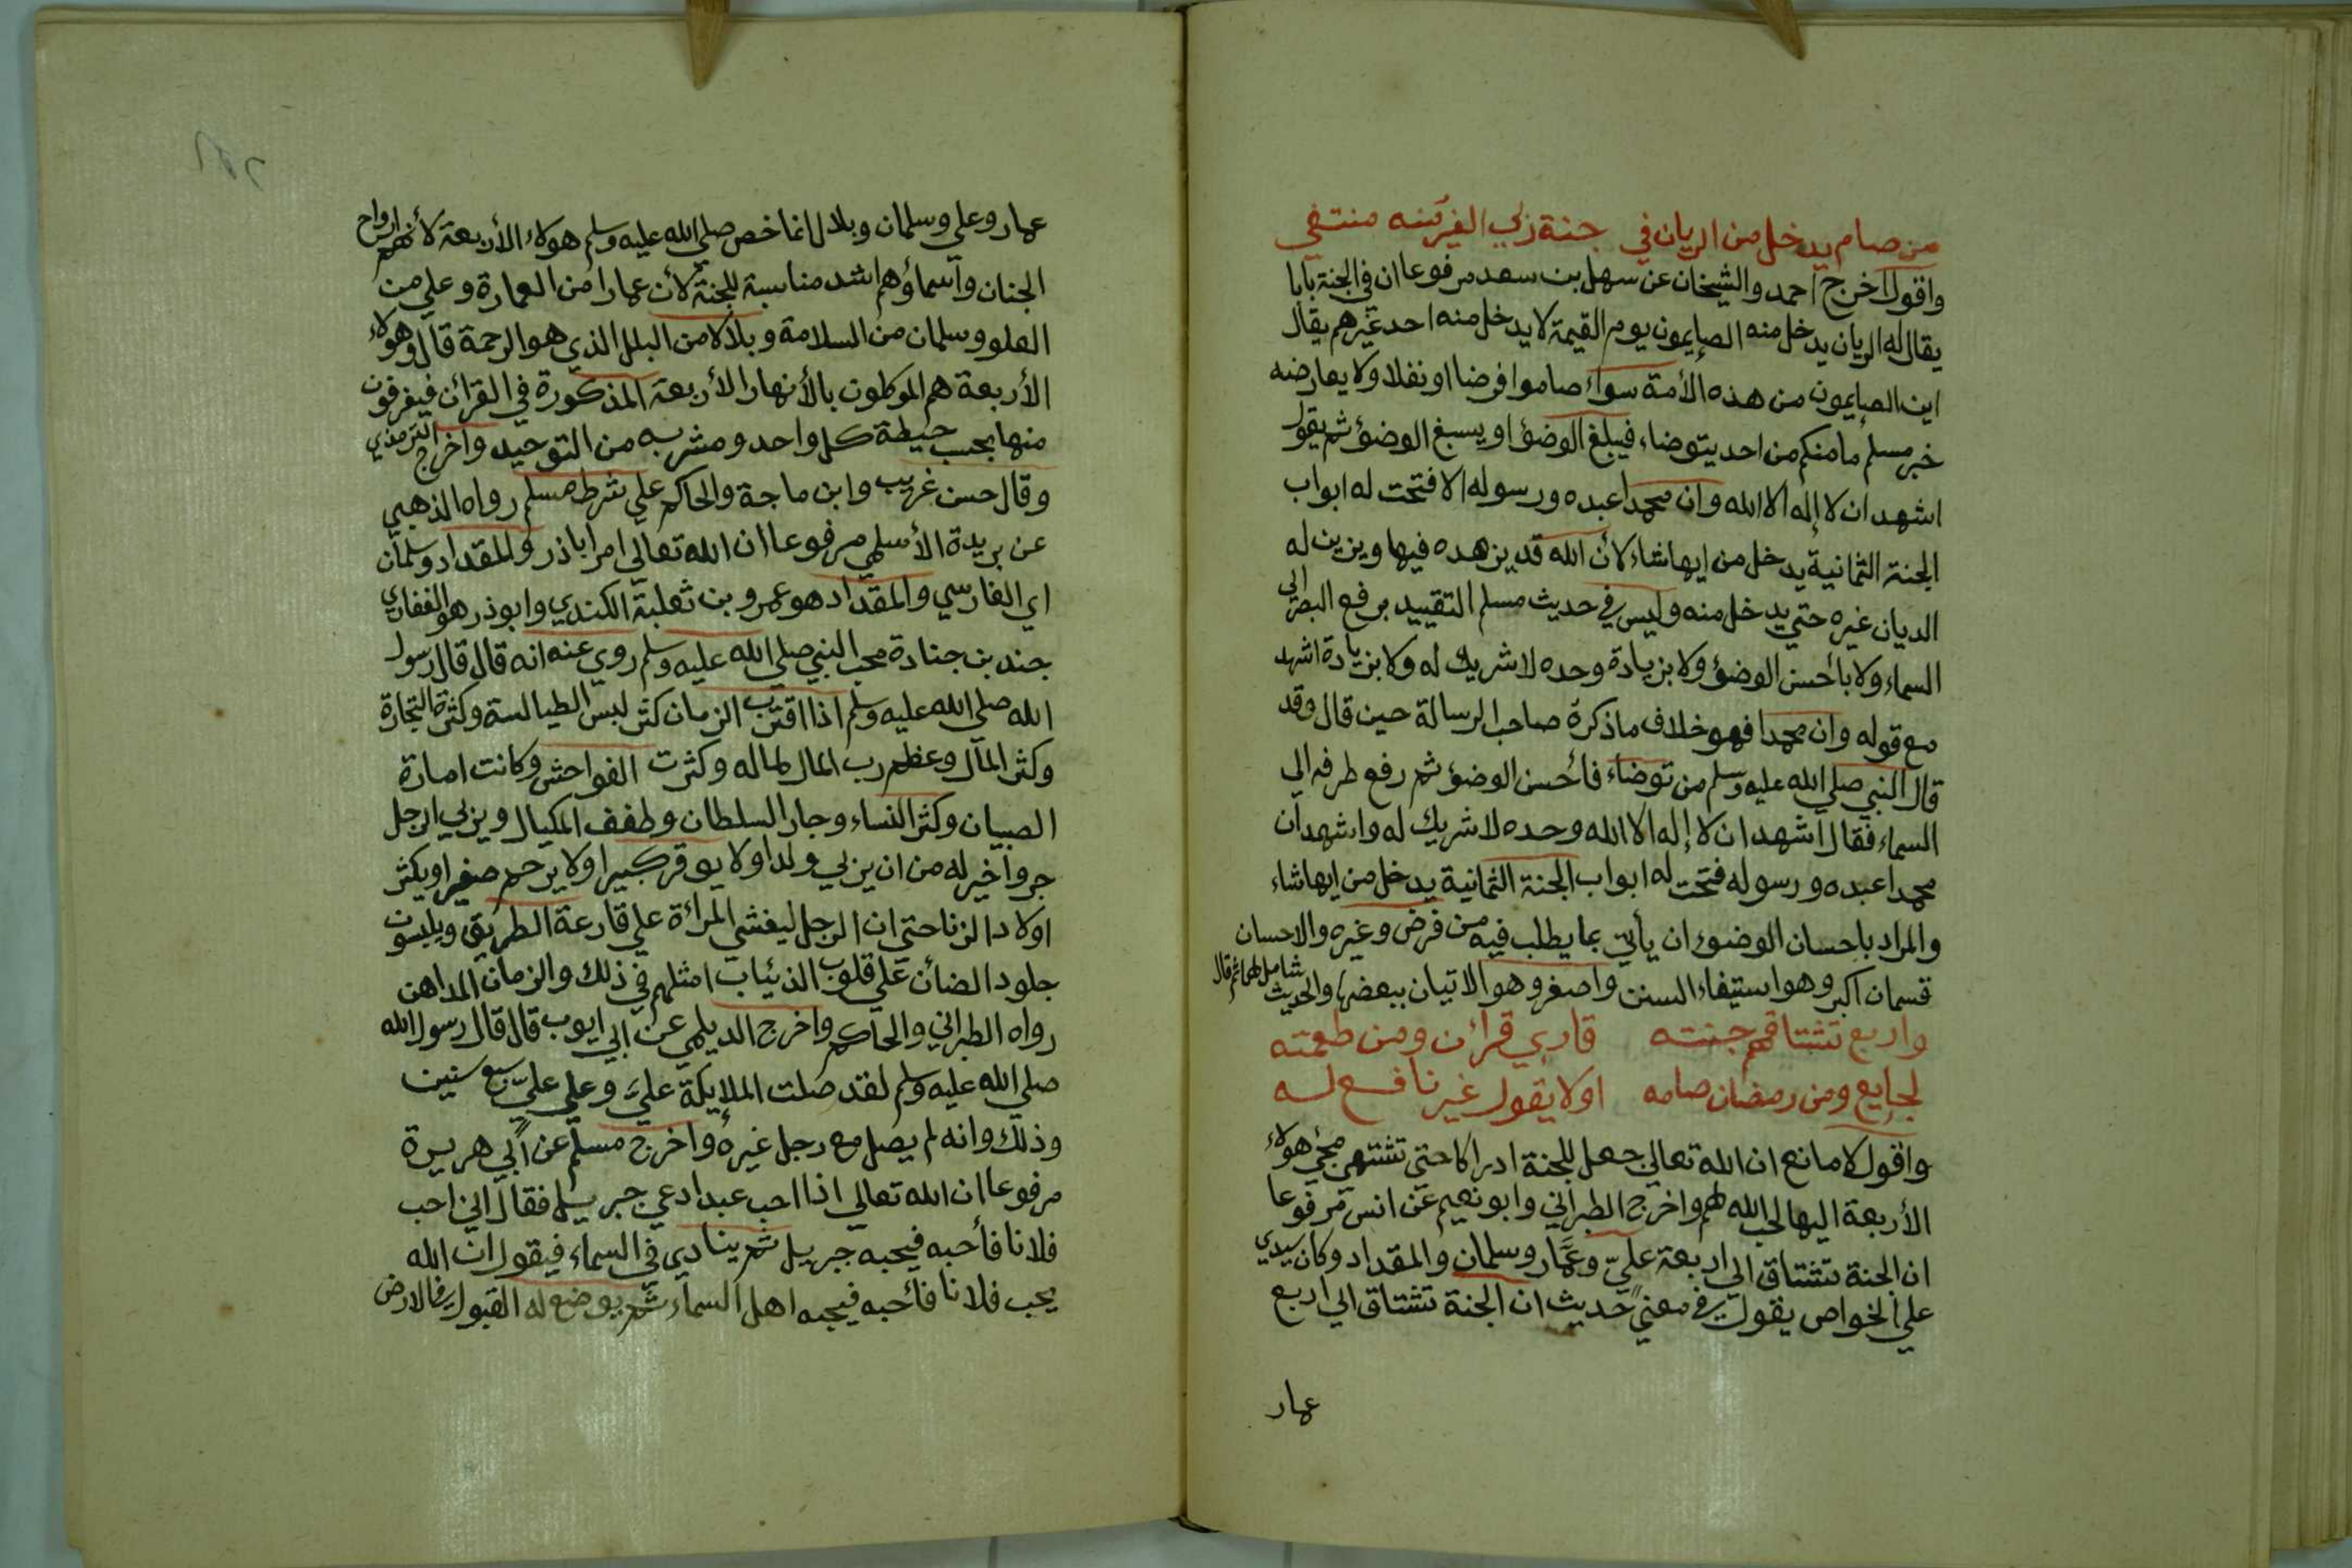 من صام يدخل من الريان في جنة ربي الغر منتفي
واقول اخرج احمد والشيخان عن سهل بن سعد مرفوعا ان في الجنة بابا
يقال له الريان يدخل منه الصايمون يوم القيمة لا يدخل منه احد غيرهم يقال
اين الصايمون من هذه الأمة سواء صاموا فرضا او نفلا ولا يعارضه
خبر مسلم ما منكم من احد يتوضاء فيبلغ الوضؤ او يسبغ الوضؤ ثم يقول
اشهد ان لا إله الا الله وان محمدا عبده ورسوله الا فتحت له ابواب
الجنة الثمانية يدخل من ايها شاء لأن الله قد يزهده فيها ويزين له
الديان غيره حتي يدخل منه وليس في حديث مسلم التقييد برفع البصر الي
السماء ولا بأحسن الوضؤ ولا بزيادة وحده لا شريك له ولا بزيادة اشهد
مع قوله وان محمدا فهو خلاف ما ذكرة صاحب الرسالة حين قال وقد
قال النبي صلي الله عليه وسلم من توضاء فأحسن الوضؤ ثم رفع طرفه الي
السماء فقال اشهد ان لا إله الا الله وحده لا شريك له واشهد ان
محمدا عبده ورسوله فتحت له ابواب الجنة الثمانية يدخل من ايها شاء
والمراد باحسان الوضوء ان يأتي بما يطلب فيه من فرض وغيره والاحسان
قسمان اكبر وهو استيفاء السنن واصغر وهو الاتيان ببعضها والحديث شامل لهما ثم قال
واربع تشتاقهم جنته قاري قرأن ومن طعمته
لجايع ومن رمضان صامه اولا يقول غير نافع له
واقول لا مانع ان الله تعالي جعل للجنة ادراكا حتي تشتهي مجئ هولاء
الأربعة اليها لحب الله لهم واخرج الطبراني وابو نعيم عن انس مرفوعا
ان الجنة تشتاق الي اربعة عليّ وعمّار وسلمان والمقداد وكان سيدي
علي الخواص يقول في معني حديث ان الجنة تشتاق الي اربع
عمار
عمار وعلي وسلمان وبلال انما خص صلي الله عليه وسلم هولاء الأربعة لأنهم ارواح
الجنان واسماؤهم اشد مناسبة للجنة لأن عمارا من العمارة وعلي من
العلو وسلمان من السلامة وبلالا من البلل الذي هو الرحمة قال وهولاء
الأربعة هم الموكلون بالأنهار الأربعة المذكورة في القرأن فيغرفون
منها بحسب حيطة كل واحد ومشربه من التوحيد واخرج الترمذي
وقال حسن غريب وابن ماجة والحاكم علي شرط مسلم رواه الذهبي
عن بريدة الأسلمي مرفوعا ان الله تعالي امر اباذر والمقداد وسلمان
اي الفارسي والمقداد هو عمرو بن ثعلبة الكندي وابوذر هو الغفاري
جندب بن جنادة محب النبي صلي الله عليه وسلم روي عنه انه قال قال رسول
الله صلي الله عليه وسلم اذا اقترب الزمان كثر لبس الطيالسة وكثرة التجارة
وكثر المال وعظم رب المال لماله وكثرت الفواحش وكانت امارة
الصبيان وكثر النساء وجار السلطان وطفف المكيال ويربي الرجل
جروا خير له من ان يربي ولدا ولا يوقر كبيرا ولا يرحم صغيرا ويكثر
اولاد الزنا حتي ان الرجل ليغشي المراءة علي قارعة الطريق ويلبسون
جلود الضائن علي قلوب الذئياب امثلهم في ذلك والزمان المداهن
رواه الطبراني والحاكم واخرج الديلمي عن ابي ايوب قال قال رسول الله
صلي الله عليه وسلم لقد صلت الملايكة عليّ وعلي عليّ سبع سنين
وذلك وانه لم يصل مع رجل غيره واخرج مسلم عن ابي هريرة
مرفوعا ان الله تعالي اذا احب عبدا دعي جبريل فقال اني احب
فلانا فأحبه فيحبه جبريل ثم ينادي في السماء فيقول ان الله
يحب فلانا فأحبه فيحبه اهل السماء ثم يوضع له القبول في الارض